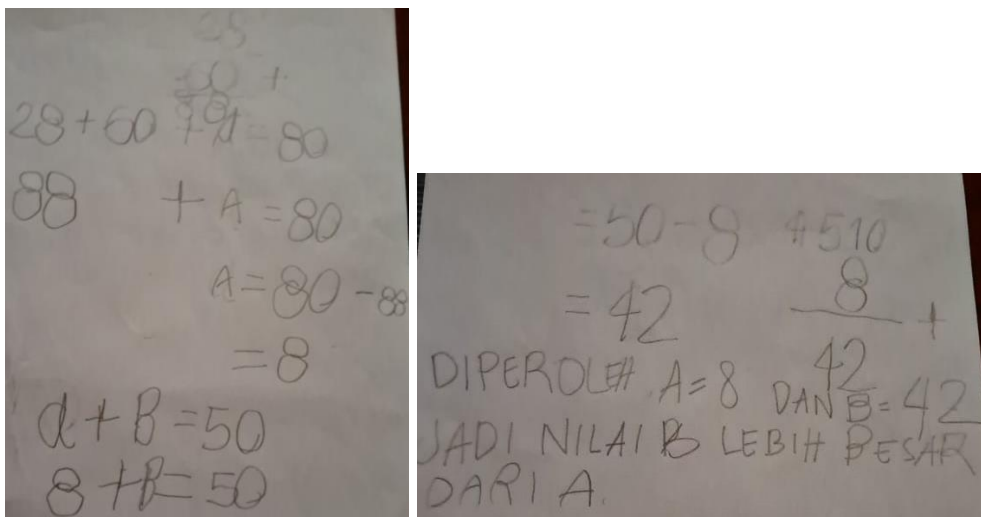 28
60 +
88
28 + 60 + A = 80
88 + A = 80
A = 80 - 88
= 8
A + B = 50
8 + B = 50
= 50 - 8
= 42
510
8
+
42
DIPEROLEH A = 8 DAN B = 42
JADI NILAI B LEBIH BESAR
DARI A.